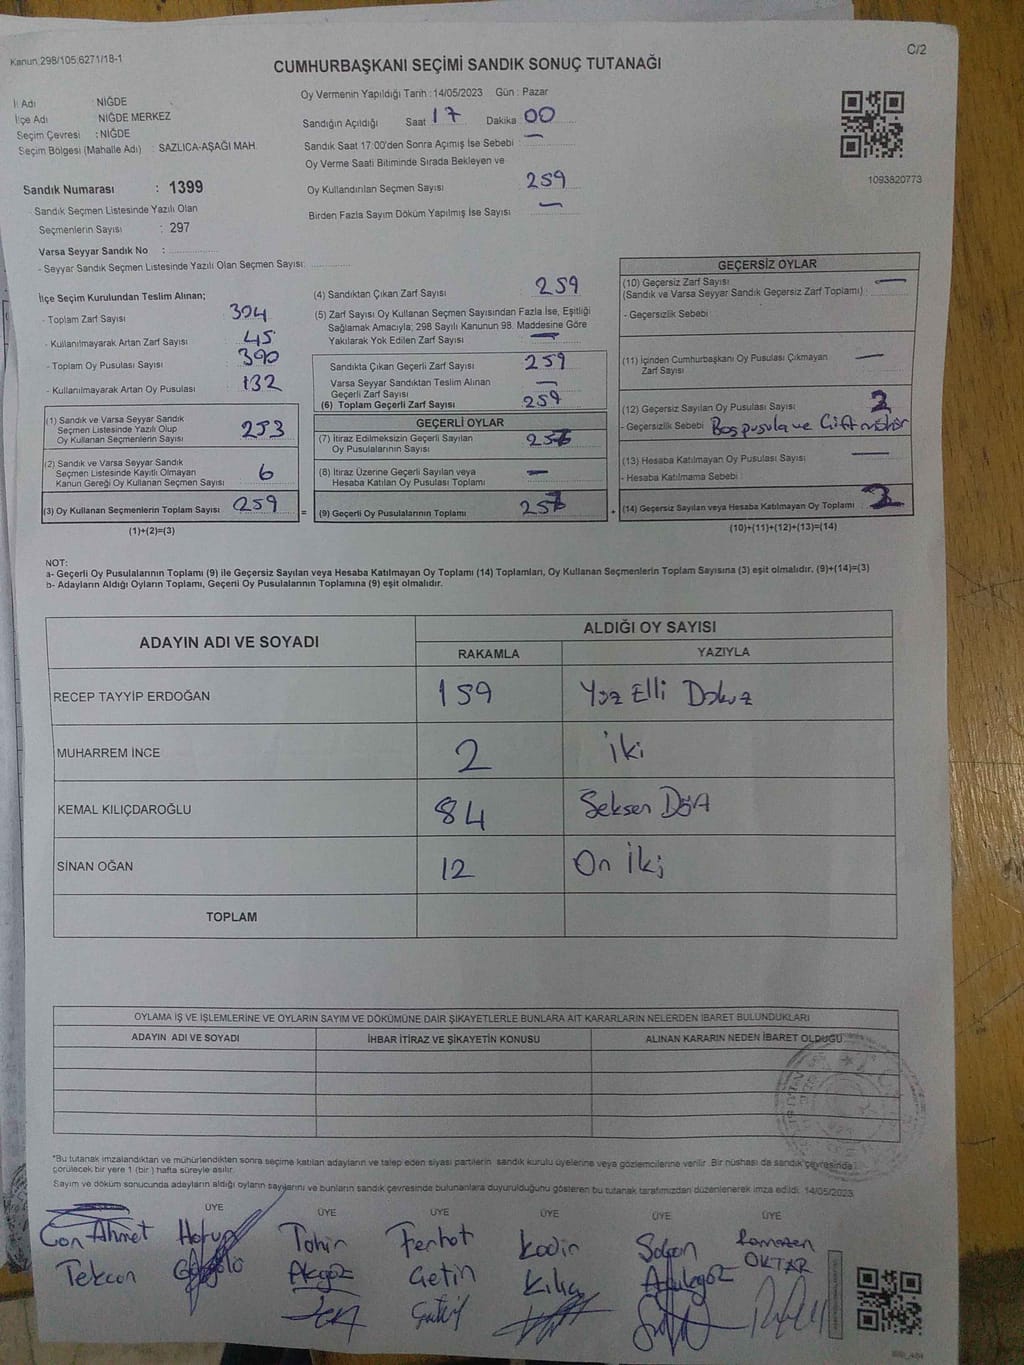 Kanun:298/105;6271/18-1
C/2
CUMHURBAŞKANI SEÇİMİ SANDIK SONUÇ TUTANAĞI
İl Adı : NİĞDE
İlçe Adı : NİĞDE MERKEZ
Seçim Çevresi : NİĞDE
Seçim Bölgesi (Mahalle Adı) : SAZLICA-AŞAĞI MAH.
Sandık Numarası : 1399
- Sandık Seçmen Listesinde Yazılı Olan
Seçmenlerin Sayısı : 297
Varsa Seyyar Sandık No :
- Seyyar Sandık Seçmen Listesinde Yazılı Olan Seçmen Sayısı:
Oy Vermenin Yapıldığı Tarih : 14/05/2023 Gün : Pazar
Sandığın Açıldığı Saat 17 Dakika 00
Sandık Saat 17:00'den Sonra Açımış İse Sebebi : —
Oy Verme Saati Bitiminde Sırada Bekleyen ve
Oy Kullandırılan Seçmen Sayısı 259
Birden Fazla Sayım Döküm Yapılmış İse Sayısı —
1093820773
İlçe Seçim Kurulundan Teslim Alınan;
- Toplam Zarf Sayısı : 304
- Kullanılmayarak Artan Zarf Sayısı : 45
- Toplam Oy Pusulası Sayısı : 390
- Kullanılmayarak Artan Oy Pusulası : 132
(1) Sandık ve Varsa Seyyar Sandık
Seçmen Listesinde Yazılı Olup
Oy Kullanan Seçmenlerin Sayısı 253
(2) Sandık ve Varsa Seyyar Sandık
Seçmen Listesinde Kayıtlı Olmayan
Kanun Gereği Oy Kullanan Seçmen Sayısı 6
(3) Oy Kullanan Seçmenlerin Toplam Sayısı 259
(1)+(2)=(3)
(4) Sandıktan Çıkan Zarf Sayısı 259
(5) Zarf Sayısı Oy Kullanan Seçmen Sayısından Fazla İse, Eşitliği
Sağlamak Amacıyla; 298 Sayılı Kanunun 98. Maddesine Göre
Yakılarak Yok Edilen Zarf Sayısı —
Sandıkta Çıkan Geçerli Zarf Sayısı 259
Varsa Seyyar Sandıktan Teslim Alınan
Geçerli Zarf Sayısı —
(6) Toplam Geçerli Zarf Sayısı 259
GEÇERLİ OYLAR
(7) İtiraz Edilmeksizin Geçerli Sayılan
Oy Pusulalarının Sayısı 257
(8) İtiraz Üzerine Geçerli Sayılan veya
Hesaba Katılan Oy Pusulası Toplamı —
= (9) Geçerli Oy Pusulalarının Toplamı 257 +
GEÇERSİZ OYLAR
(10) Geçersiz Zarf Sayısı —
(Sandık ve Varsa Seyyar Sandık Geçersiz Zarf Toplamı) :
- Geçersizlik Sebebi
(11) İçinden Cumhurbaşkanı Oy Pusulası Çıkmayan
Zarf Sayısı —
(12) Geçersiz Sayılan Oy Pusulası Sayısı 2
- Geçersizlik Sebebi Boş pusula ve Çift mühür
(13) Hesaba Katılmayan Oy Pusulası Sayısı —
- Hesaba Katılmama Sebebi
(14) Geçersiz Sayılan veya Hesaba Katılmayan Oy Toplamı 2
(10)+(11)+(12)+(13)=(14)
NOT:
a- Geçerli Oy Pusulalarının Toplamı (9) ile Geçersiz Sayılan veya Hesaba Katılmayan Oy Toplamı (14) Toplamları, Oy Kullanan Seçmenlerin Toplam Sayısına (3) eşit olmalıdır. (9)+(14)=(3)
b- Adayların Aldığı Oyların Toplamı, Geçerli Oy Pusulalarının Toplamına (9) eşit olmalıdır.
ADAYIN ADI VE SOYADI ALDIĞI OY SAYISI
RAKAMLA YAZIYLA
RECEP TAYYİP ERDOĞAN 159 Yüz Elli Dokuz
MUHARREM İNCE 2 iki
KEMAL KILIÇDAROĞLU 84 Seksen Dört
SİNAN OĞAN 12 On İki
TOPLAM
OYLAMA İŞ VE İŞLEMLERİNE VE OYLARIN SAYIM VE DÖKÜMÜNE DAİR ŞİKAYETLERLE BUNLARA AİT KARARLARIN NELERDEN İBARET BULUNDUKLARI
ADAYIN ADI VE SOYADI İHBAR İTİRAZ VE ŞİKAYETİN KONUSU ALINAN KARARIN NEDEN İBARET OLDUĞU
*Bu tutanak imzalandıktan ve mühürlendikten sonra seçime katılan adayların ve talep eden siyasi partilerin sandık kurulu üyelerine veya gözlemcilerine verilir. Bir nüshası da sandık çevresinde
görülecek bir yere 1 (bir ) hafta süreyle asılır.
Sayım ve döküm sonucunda adayların aldığı oyların sayılarını ve bunların sandık çevresinde bulunanlara duyurulduğunu gösteren bu tutanak tarafımızdan düzenlenerek imza edildi. 14/05/2023
ÜYE ÜYE ÜYE ÜYE ÜYE ÜYE
Can Ahmet Harun Tahir Ferhat Kadir Ramazan
Tekcan Akgöz Çetin Kılıç OKTAR